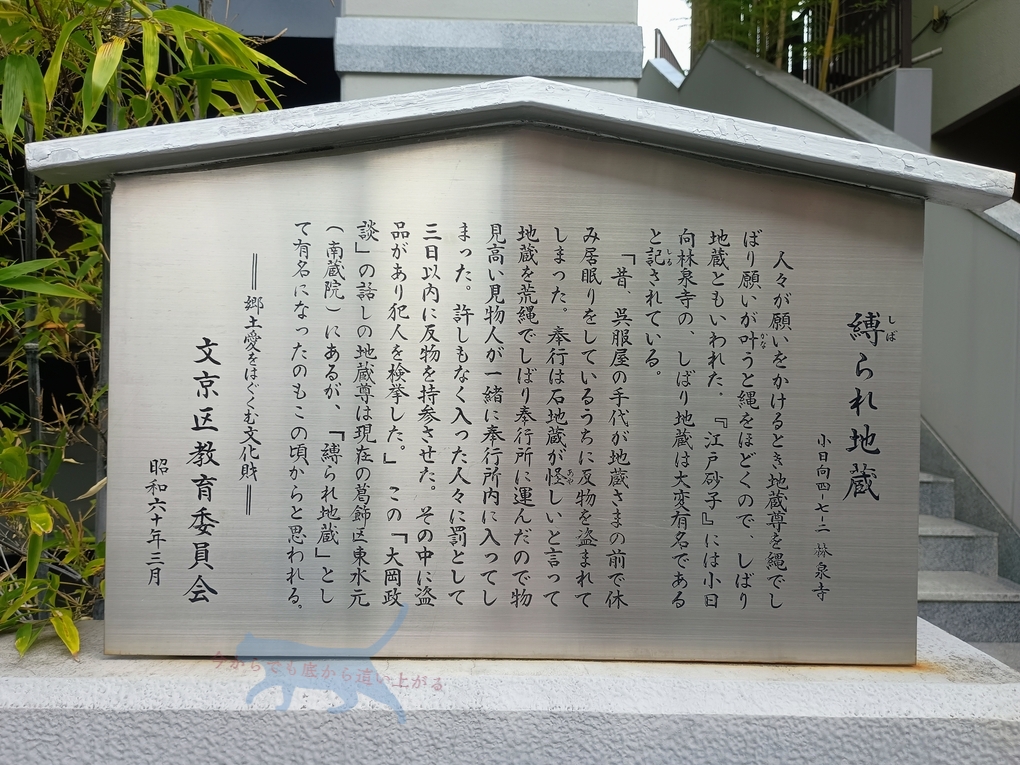 縛られ地蔵
しば
小日向四-七-二 林泉寺
人々が願いをかけるとき地蔵尊を縄でし
ばり願いが叶うと縄をほどくので、しばり
かな
地蔵ともいわれた。『江戸砂子』には小日
向林泉寺の、しばり地蔵は大変有名である
と記されている。
しる
「昔、呉服屋の手代が地蔵さまの前で休
み居眠りをしているうちに反物を盗まれて
しまった。奉行は石地蔵が怪しいと言って
あや
地蔵を荒縄でしばり奉行所に運んだので物
見高い見物人が一緒に奉行所内に入ってし
まった。許しもなく入った人々に罰として
三日以内に反物を持参させた。その中に盗
品があり犯人を検挙した。」この「大岡政
談」の話しの地蔵尊は現在の葛飾区東水元
(南蔵院)にあるが、「縛られ地蔵」とし
て有名になったのもこの頃からと思われる。
══郷土愛をはぐくむ文化財══
文京区教育委員会
昭和六十年三月
今からでも底から這い上がる